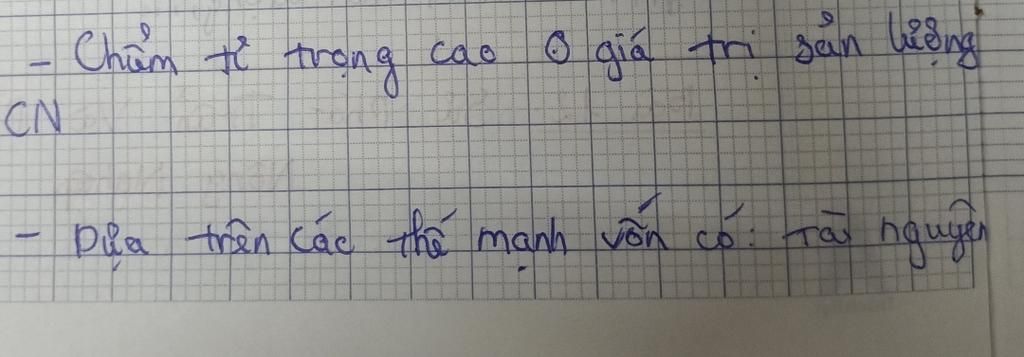 - Chẩm tỉ trọng cao ở giá trị sản lượng
CN
- Dựa trên các thế mạnh vốn có: Tài nguyên